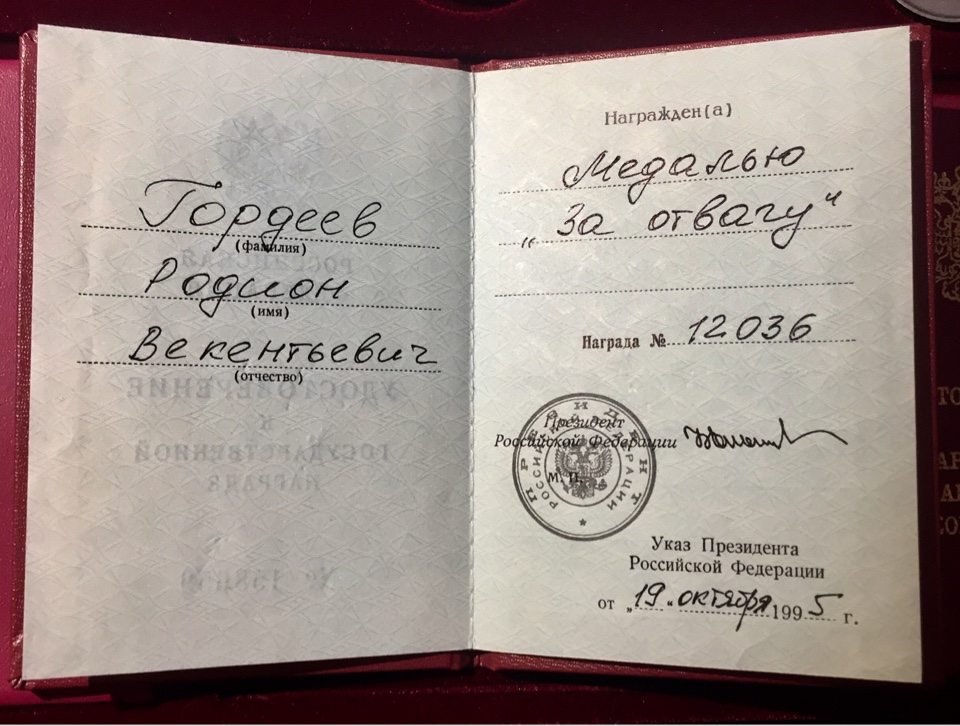 Гордеев
(фамилия)
Родион
(имя)
Векентьевич
(отчество)
Награжден(а)
Медалью
„За отвагу“
Награда № 12036
Президент
Российской Федерации
М. П.
ПРЕЗИДЕНТ
РОССИЙСКОЙ ФЕДЕРАЦИИ
Указ Президента
Российской Федерации
от „19“ октября 1995 г.
УДОСТОВЕРЕНИЕ
к
ГОСУДАРСТВЕННОЙ
НАГРАДЕ